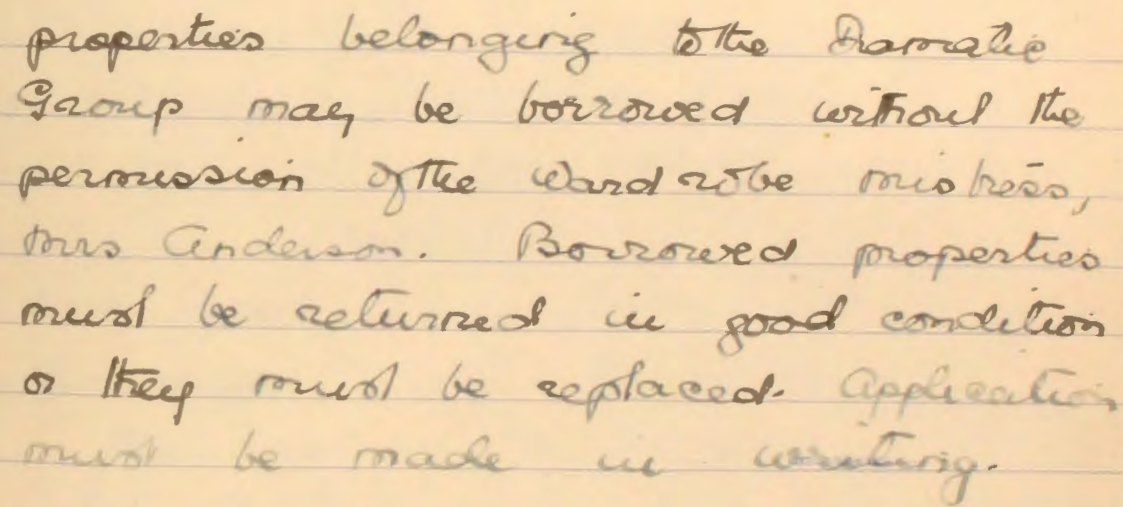 properties belonging to the Dramatic
Group may be borrowed without the
permission of the Wardrobe mistress,
Mrs Anderson. Borrowed properties
must be returned in good condition
or they must be replaced. Application
must be made in writing.